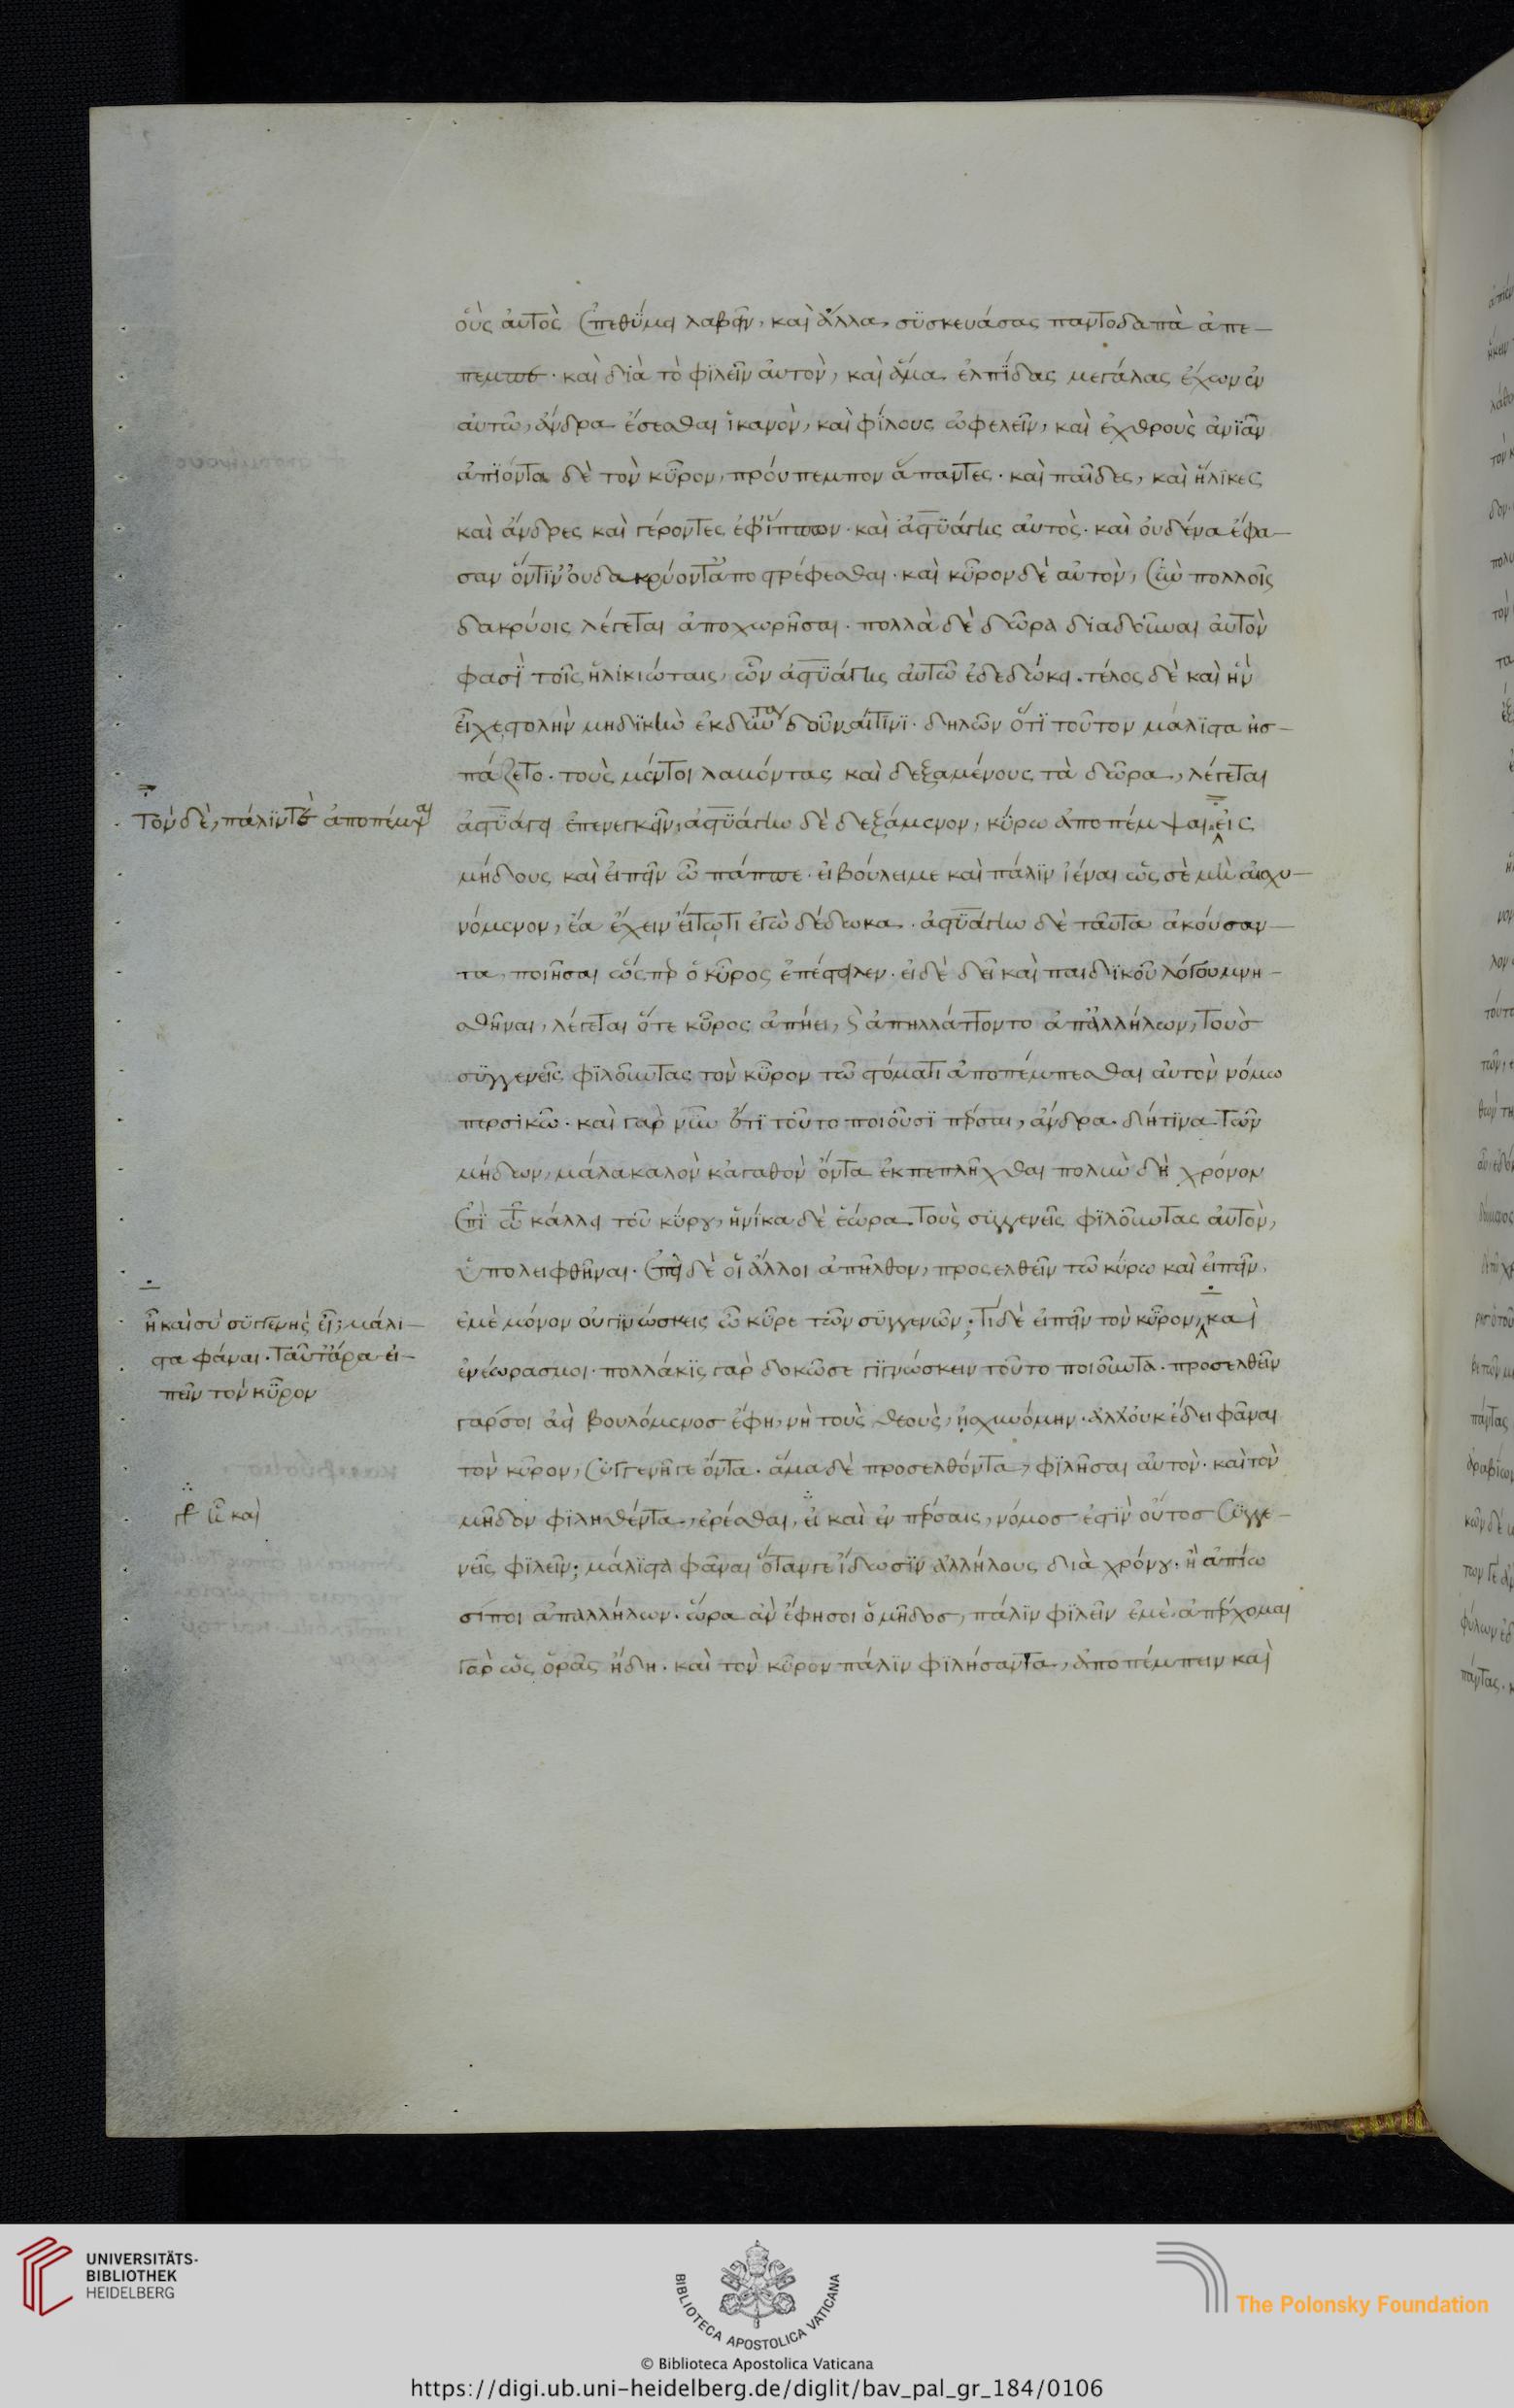 οὓς αὐτὸς ἐπεθύμει λαβεῖν, καὶ ἄλλα συσκευάσας παντοδαπὰ ἀπέ-
πεμπε· καὶ διὰ τὸ φιλεῖν αὐτὸν, καὶ ἅμα ἐλπίδας μεγάλας ἔχων ἐν
αὐτῷ, ἄνδρα ἔσεσθαι ἱκανὸν, καὶ φίλους ὠφελεῖν, καὶ ἐχθροὺς ἀνιᾶν
ἀπιόντα δὲ τὸν κῦρον, προύπεμπον ἅπαντες· καὶ παῖδες, καὶ ἥλικες
καὶ ἄνδρες καὶ γέροντες ἐφ' ἵππων· καὶ ἀστυάγης αὐτὸς· καὶ οὐδένα ἔφα-
σαν ὅντιν' οὐ δακρύοντ' ἀποστρέφεσθαι· καὶ κῦρον δὲ αὐτὸν, σὺν πολλοῖς
δακρύοις λέγεται ἀποχωρῆσαι· πολλὰ δὲ δῶρα διαδοῦναι αὐτὸν
φασὶ τοῖς ἡλικιώταις, ὧν ἀστυάγης αὐτῷ ἐδεδώκει. τέλος δὲ καὶ ἣν
εἶχε στολὴν μηδικὴν ἐκδύντα δοῦναί τινι· δηλῶν ὅτι τοῦτον μάλιστα ἠσ-
πάζετο· τοὺς μέντοι λαμόντας καὶ δεξαμένους τὰ δῶρα, λέγεται
ἀστυάγει ἐπενεγκεῖν, ἀστυάγην δὲ δεξάμενον, κύρω ἀποπέμψαι. εἰς
μήδους καὶ εἰπεῖν ὦ πάππε· εἰ βούλει με καὶ πάλιν ἰέναι ὡς σὲ μὴ αἰσχυ-
νόμενον, ἔα ἔχειν εἴ τῳ τι ἐγὼ δέδωκα. ἀστυάγην δὲ ταῦτα ἀκούσαν-
τα, ποιῆσαι ὥσπερ ὁ κῦρος ἐπέστειλεν· εἰ δὲ δεῖ καὶ παιδικοῦ λόγου μνη-
σθῆναι, λέγεται ὅτε κῦρος ἀπῄει, καὶ ἀπηλλάττοντο ἀπ' ἀλλήλων, τοὺς
συγγενεῖς φιλοῦντας τὸν κῦρον τῷ στόματι ἀποπέμπεσθαι αὐτὸν νόμω
περσικῶ· καὶ γὰρ νῦν ἔτι τοῦτο ποιοῦσι πέρσαι, ἄνδρα δή τινα τῶν
μήδων, μάλα καλὸν κἀγαθὸν ὄντα ἐκπεπλῆχθαι πολὺν δὴ χρόνον
ἐπὶ τῷ κάλλει τοῦ κύρου, ἡνίκα δὲ ἑώρα τοὺς συγγενεῖς φιλοῦντας αὐτὸν,
ὑπολειφθῆναι. ἐπεὶ δὲ οἱ ἄλλοι ἀπῆλθον, προσελθεῖν τῷ κύρω καὶ εἰπεῖν.
ἐμὲ μόνον οὐ γινώσκεις ὦ κῦρε τῶν συγγενῶν; τί δὲ εἰπεῖν τὸν κῦρον, καὶ
ἐνεώρας μοι· πολλάκις γὰρ δοκῶ σε γιγνώσκειν τοῦτο ποιοῦντα· προσελθεῖν
γάρ σοι ἀεὶ βουλόμενος ἔφη, νὴ τοὺς θεοὺς, ᾐσχυνόμην· ἀλλ' οὐκ ἔδει φάναι
τὸν κῦρον, συγγενῆ γε ὄντα· ἅμα δὲ προσελθόντα, φιλῆσαι αὐτὸν· καὶ τὸν
μῆδον φιληθέντα, ἐρέσθαι, εἰ καὶ ἐν πέρσαις, νόμος ἐστὶν οὗτος συγγε-
νεῖς φιλεῖν; μάλιστα φάναι ὅταν γε ἴδωσιν ἀλλήλους διὰ χρόνου. ἢ ἀπίω
σί ποι ἀπ' ἀλλήλων. ὥρα ἂν ἔφη σοι ὁ μῆδος, πάλιν φιλεῖν ἐμὲ· ἀπέρχομαι
γὰρ ὡς ὁρᾷς ἤδη. καὶ τὸν κῦρον πάλιν φιλήσαντα, ἀποπέμπειν καὶ
τὸν δὲ, πάλιν τε ἀποπέμψαι
ἦ καὶ σὺ συγγενὴς εἶ; μάλι-
στα φάναι. ταῦτ' ἄρα εἰ-
πεῖν τὸν κῦρον
γρ ἦ καὶ
UNIVERSITÄTS-
BIBLIOTHEK
HEIDELBERG
BIBLIOTECA APOSTOLICA VATICANA
The Polonsky Foundation
© Biblioteca Apostolica Vaticana
https://digi.ub.uni-heidelberg.de/diglit/bav_pal_gr_184/0106